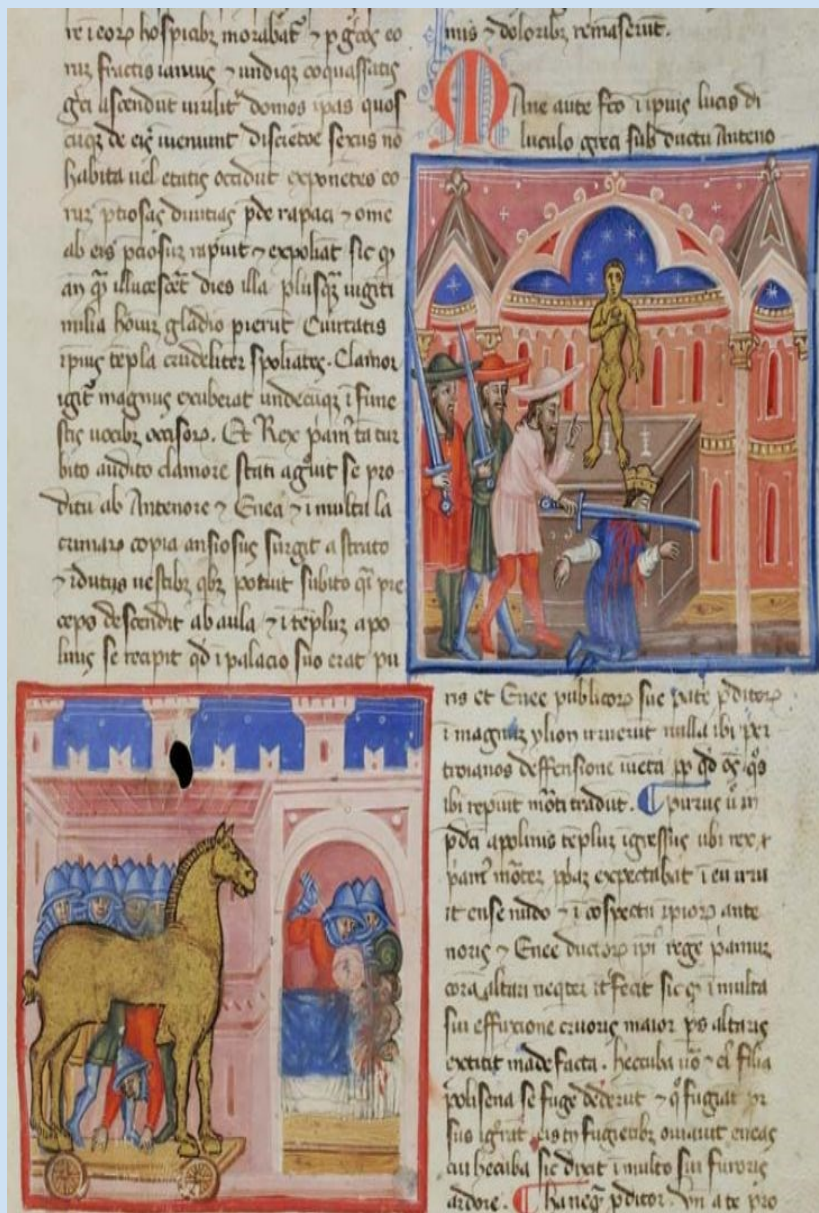 re i eorꝫ hospicibꝫ morabāt ⁊ p g̃cos eo
rūꝫ fractis ianuis ⁊ undiqꝫ coquassatis
g̃ci ascendūt uirilit̃ domos ipas quos
cūqꝫ de eis īuenunt discretōe sexus nō
habita uel etatis occidūt exponētes eo
rūꝫ p̄tiosas diuitias p̄de rapaci ⁊ om̄e
ab eis p̄ciosuꝫ rapuit ⁊ expoliāt sic qͦ
an̄ qͣꝫ illucesc̄et dies illa plusqͣꝫ uigīti
milia hoīuꝫ gladio pierūt Ciuitatis
ip̄ius tēpla crudeliter spoliātes. Clamor
igit̄ magnus exuberat undecūqꝫ ī fune
stis uocibꝫ occisorꝫ. Et Rex p̄amꝰ tā tur
bito audito clamore statī ag̃uit se pro
ditū ab Antenore ⁊ Enea ⁊ ī multa la
crimarꝫ copia ansiosus surgit a strato
⁊ īdutus uestibꝫ qͥbꝫ potuit subito qͣi pre
ceps descendit ab aula ⁊ ī tēpluꝫ apo
linis se recipit qd̄ ī palacio suo erat
mis ⁊ doloribꝫ remāserūt.
Mane aūte fc̄o ī ip̄ius lucis di
luculo greci sub ductu Anteno
ris et Enee publicorꝫ sue p̄ate p̄ditorꝫ
ī magnuꝫ ylion irruerūt nulla ibi per
troianos deffensione īuēta pp̄ qd̄ oēs qͦs
ibi repiūt mōti tradūt. ¶ pirrus ū̄ in
p̄dc̄i apolinis tēpluꝫ īgressus ubi rex
p̄amꝰ mōteꝫ expectabat ī eū irru
it ense nudo ⁊ ī cōspectu ip̄orꝫ ante
noris ⁊ Enee ductorꝫ ip̄ regē p̄amuꝫ
corā altari neq̄ter īt̄fecit sic qͦ ī multa
sui effuxione cruoris maior ps altaris
extitit madefacta. Heccuba ūo ⁊ ei filia
polisena se fuge dederūt ⁊ qͦ fugiāt pr
sus igr̄āt. eis fugientibꝫ ouiauit eneas
cui heccuba sic dixit ī multo sui furoris
ardore. ¶ ha neqͣ p̄ditor. vn̄ a te pro